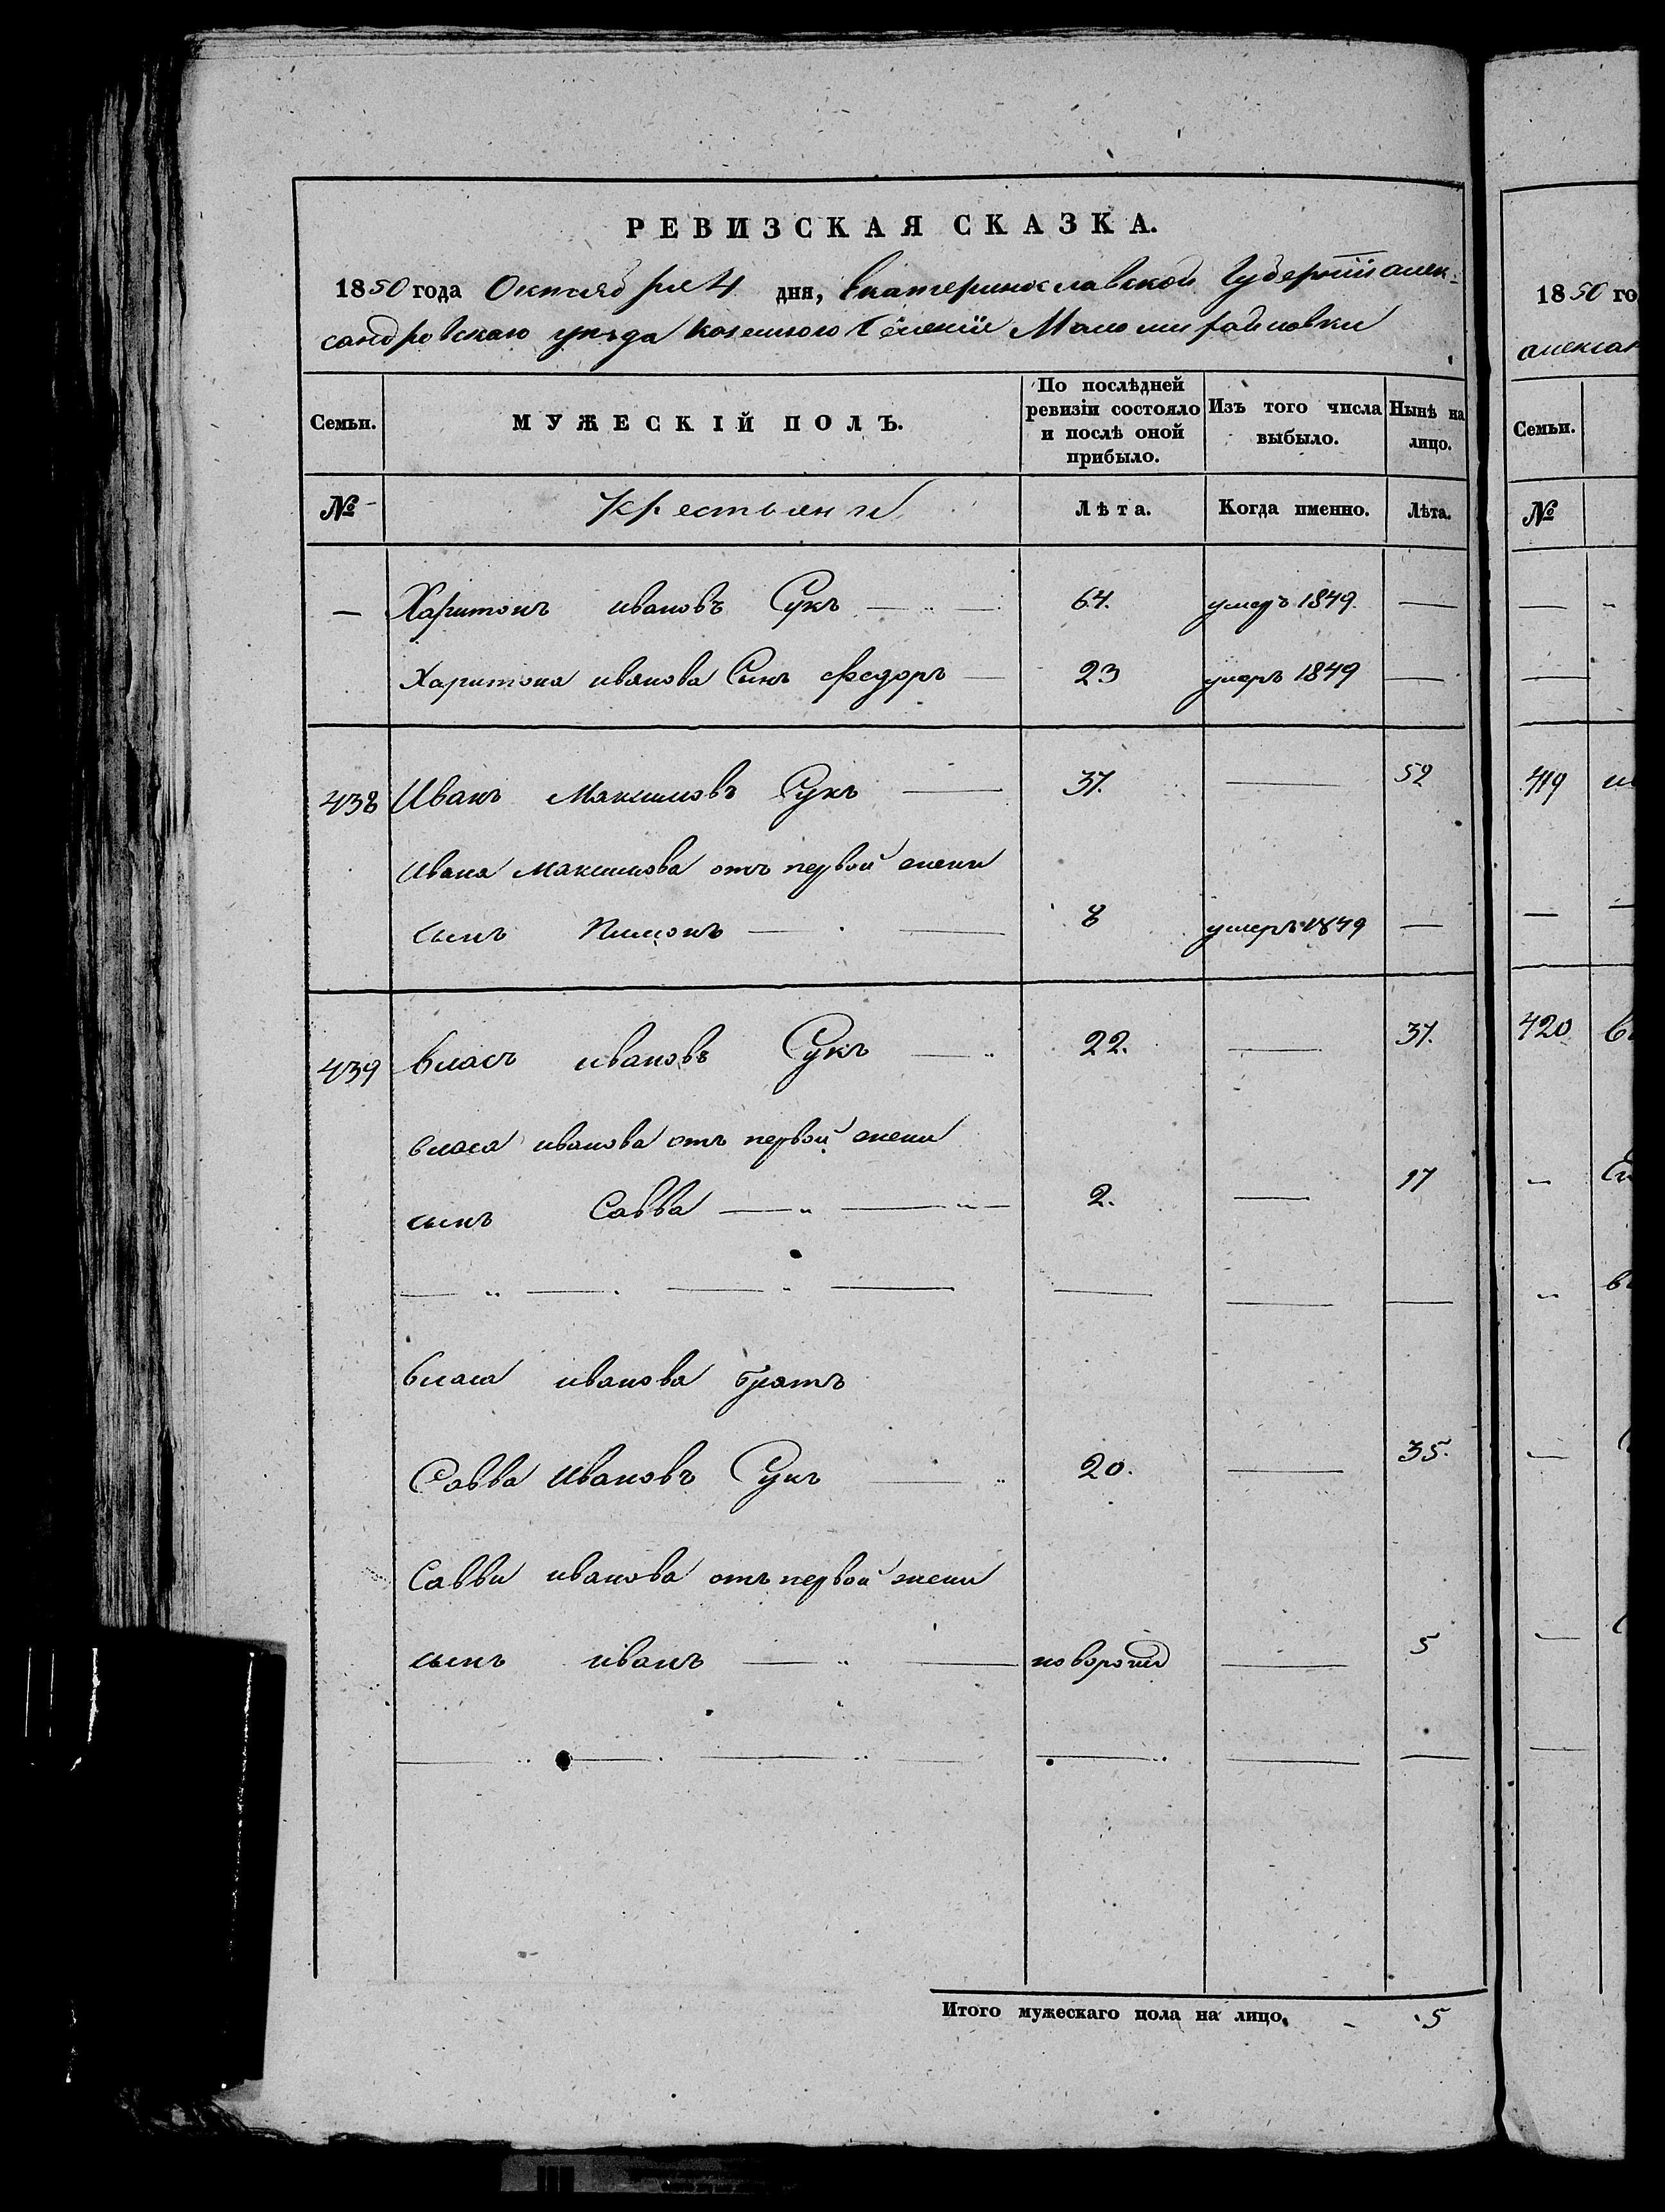 РЕВИЗСКАЯ СКАЗКА.
1850 года Октября 4 дня, Екатеринославской Губернiи алек-
сандровскаго уезда казенного Селенiя Маломихайловки
Семьи. МУЖЕСКІЙ ПОЛЪ. По послѣдней ревизіи состояло и послѣ оной прибыло. Изъ того числа выбыло. Нынѣ на лицо.
№ Крестьяни Лѣта. Когда именно. Лѣта.
— Харитонъ ивановъ Сукъ — 64. умеръ 1849 —
Харитона иванова Сынъ Федоръ — 23 умеръ 1849 —
438 Иванъ Максимовъ Сукъ — 37. — 52
Ивана Максимова отъ первой жени
сынъ Пимонъ — 8 умеръ 1849 —
439 Власъ ивановъ Сукъ — 22. — 37.
власа иванова отъ первой жени
сынъ Савва — 2. — 17
власа иванова братъ
Савва Ивановъ Сукъ — 20. — 35.
Савви иванова отъ первой жени
сынъ иванъ — новорожд — 5
Итого мужескаго пола на лицо, 5
1850 го
алексан
Семьи.
№
419
420